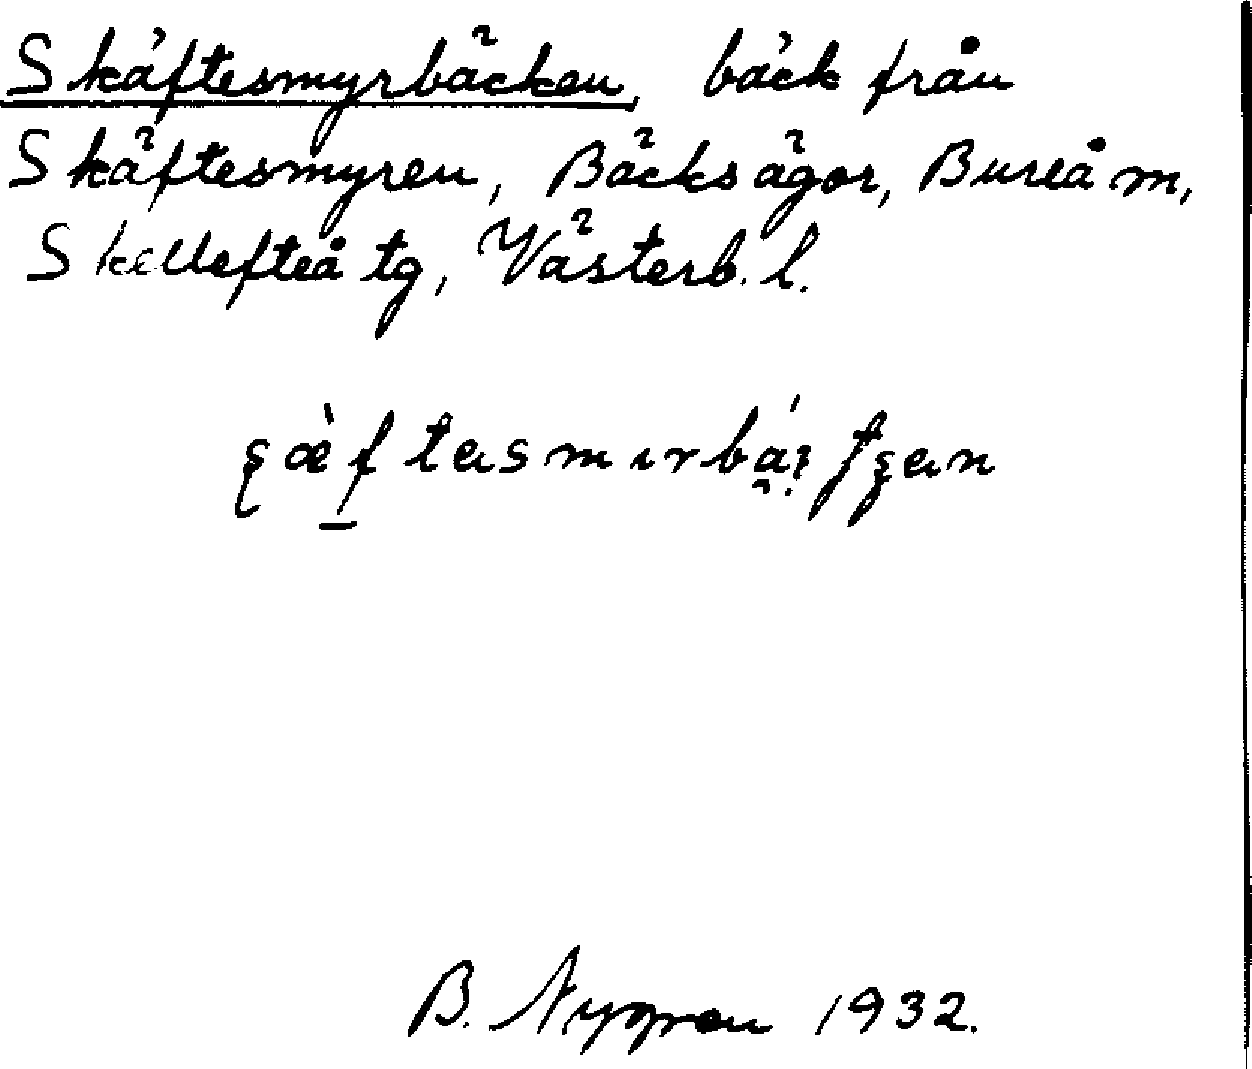 Skäftesmyrbäcken, bäck från
Skäftesmyren, Bäcksägor, Bureå m,
Skellefteå tg, Västerb. l.
B. Nygren 1932.